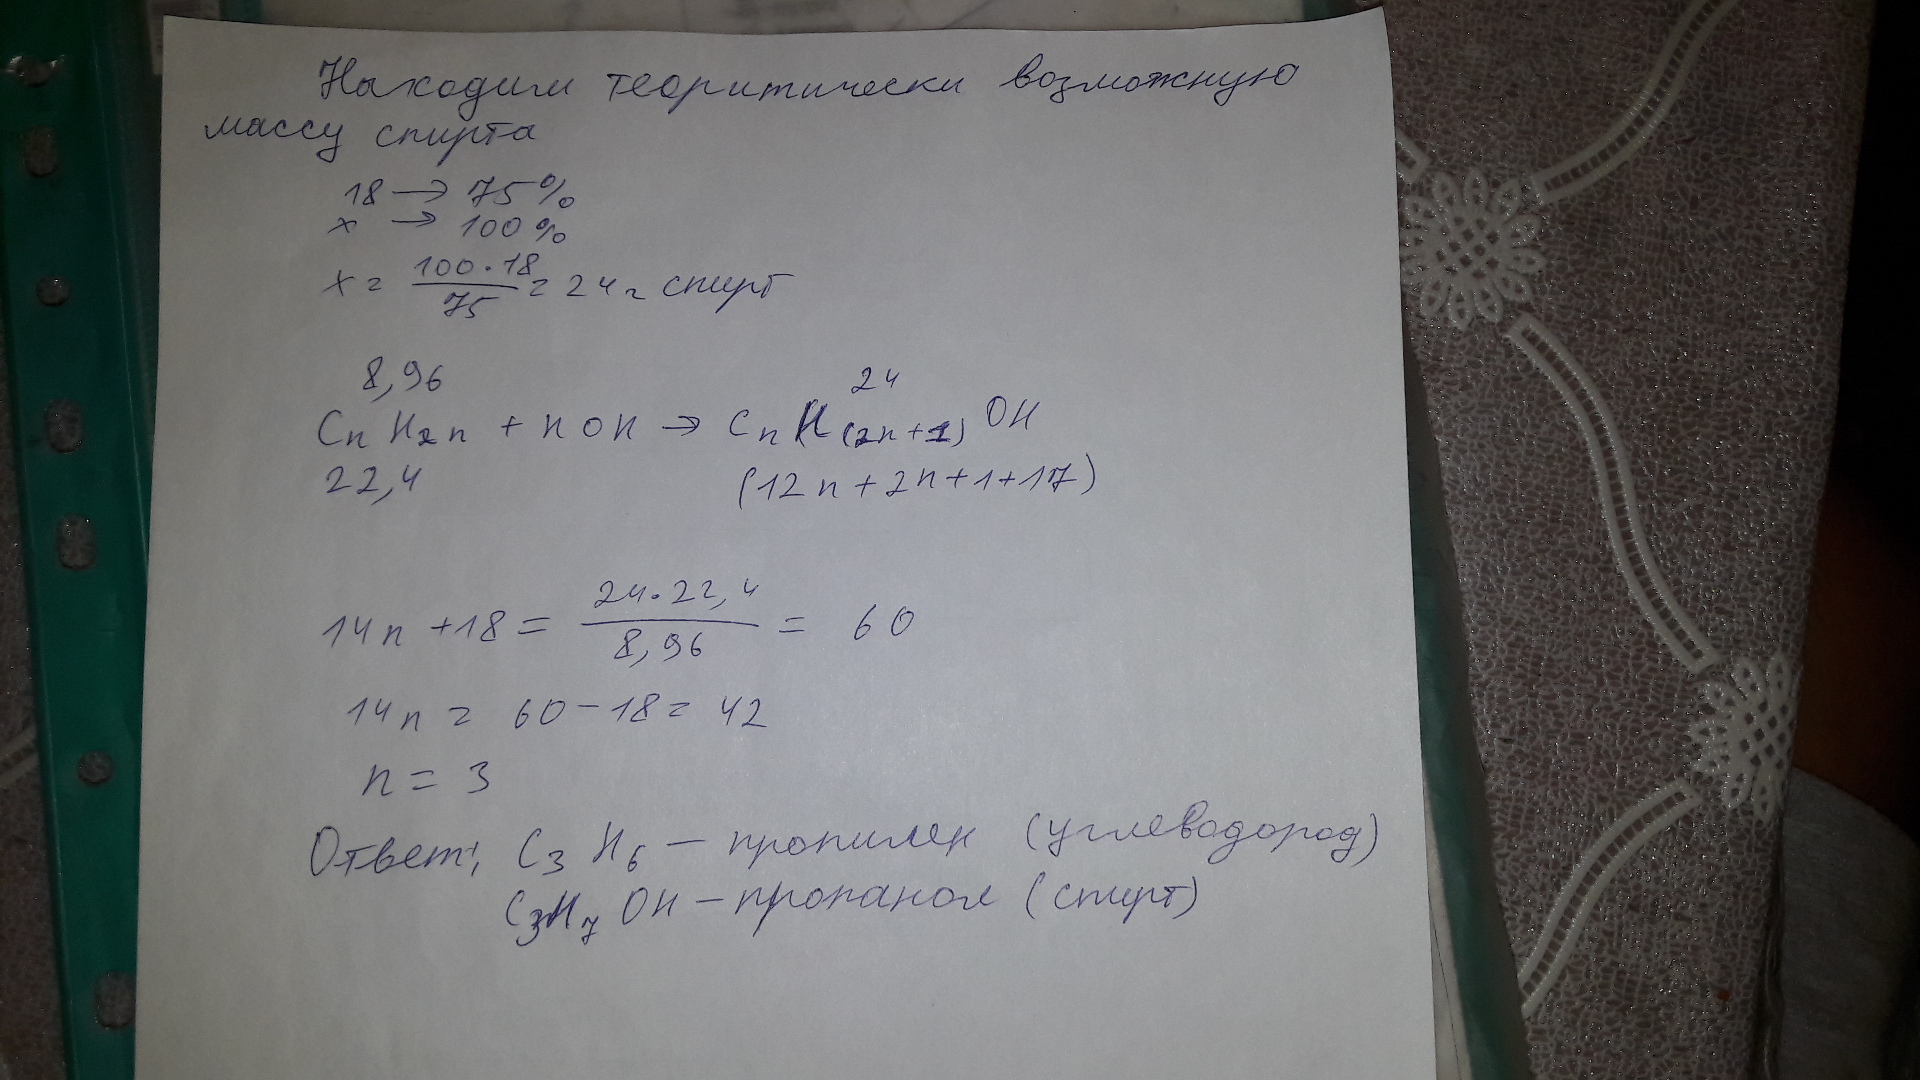 Находим теоритически возможную
массу спирта
18 → 75%
x → 100%
x = 100·18 / 75 = 24г спирт
8,96 24
CnH2n + HOH → CnH(2n+1)OH
22,4 (12n+2n+1+17)
14n +18 = 24·22,4 / 8,96 = 60
14n = 60-18 = 42
n = 3
Ответ: C3H6 – пропилен (углеводород)
C3H7OH – пропанол (спирт)